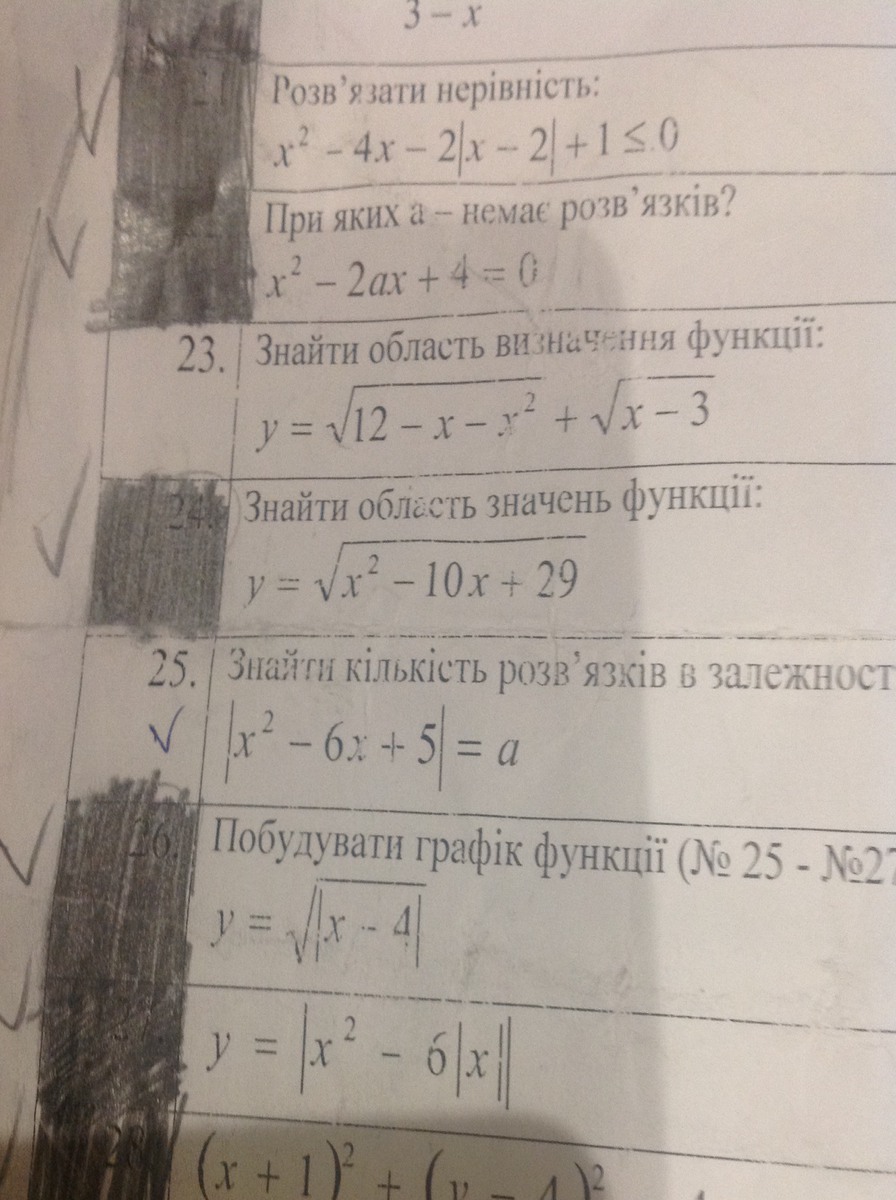 3 − x
Розв’язати нерівність:
x² − 4x − 2|x − 2| + 1 ≤ 0
При яких а – немає розв’язків?
x² − 2ax + 4 = 0
23. Знайти область визначення функції:
y = √(12 − x − x²) + √(x − 3)
24. Знайти область значень функції:
y = √(x² − 10x + 29)
25. Знайти кількість розв’язків в залежност
|x² − 6x + 5| = a
26. Побудувати графік функції (№ 25 - №27
y = √|x − 4|
y = |x² − 6|x||
28. (x + 1)² + (y − 4)²